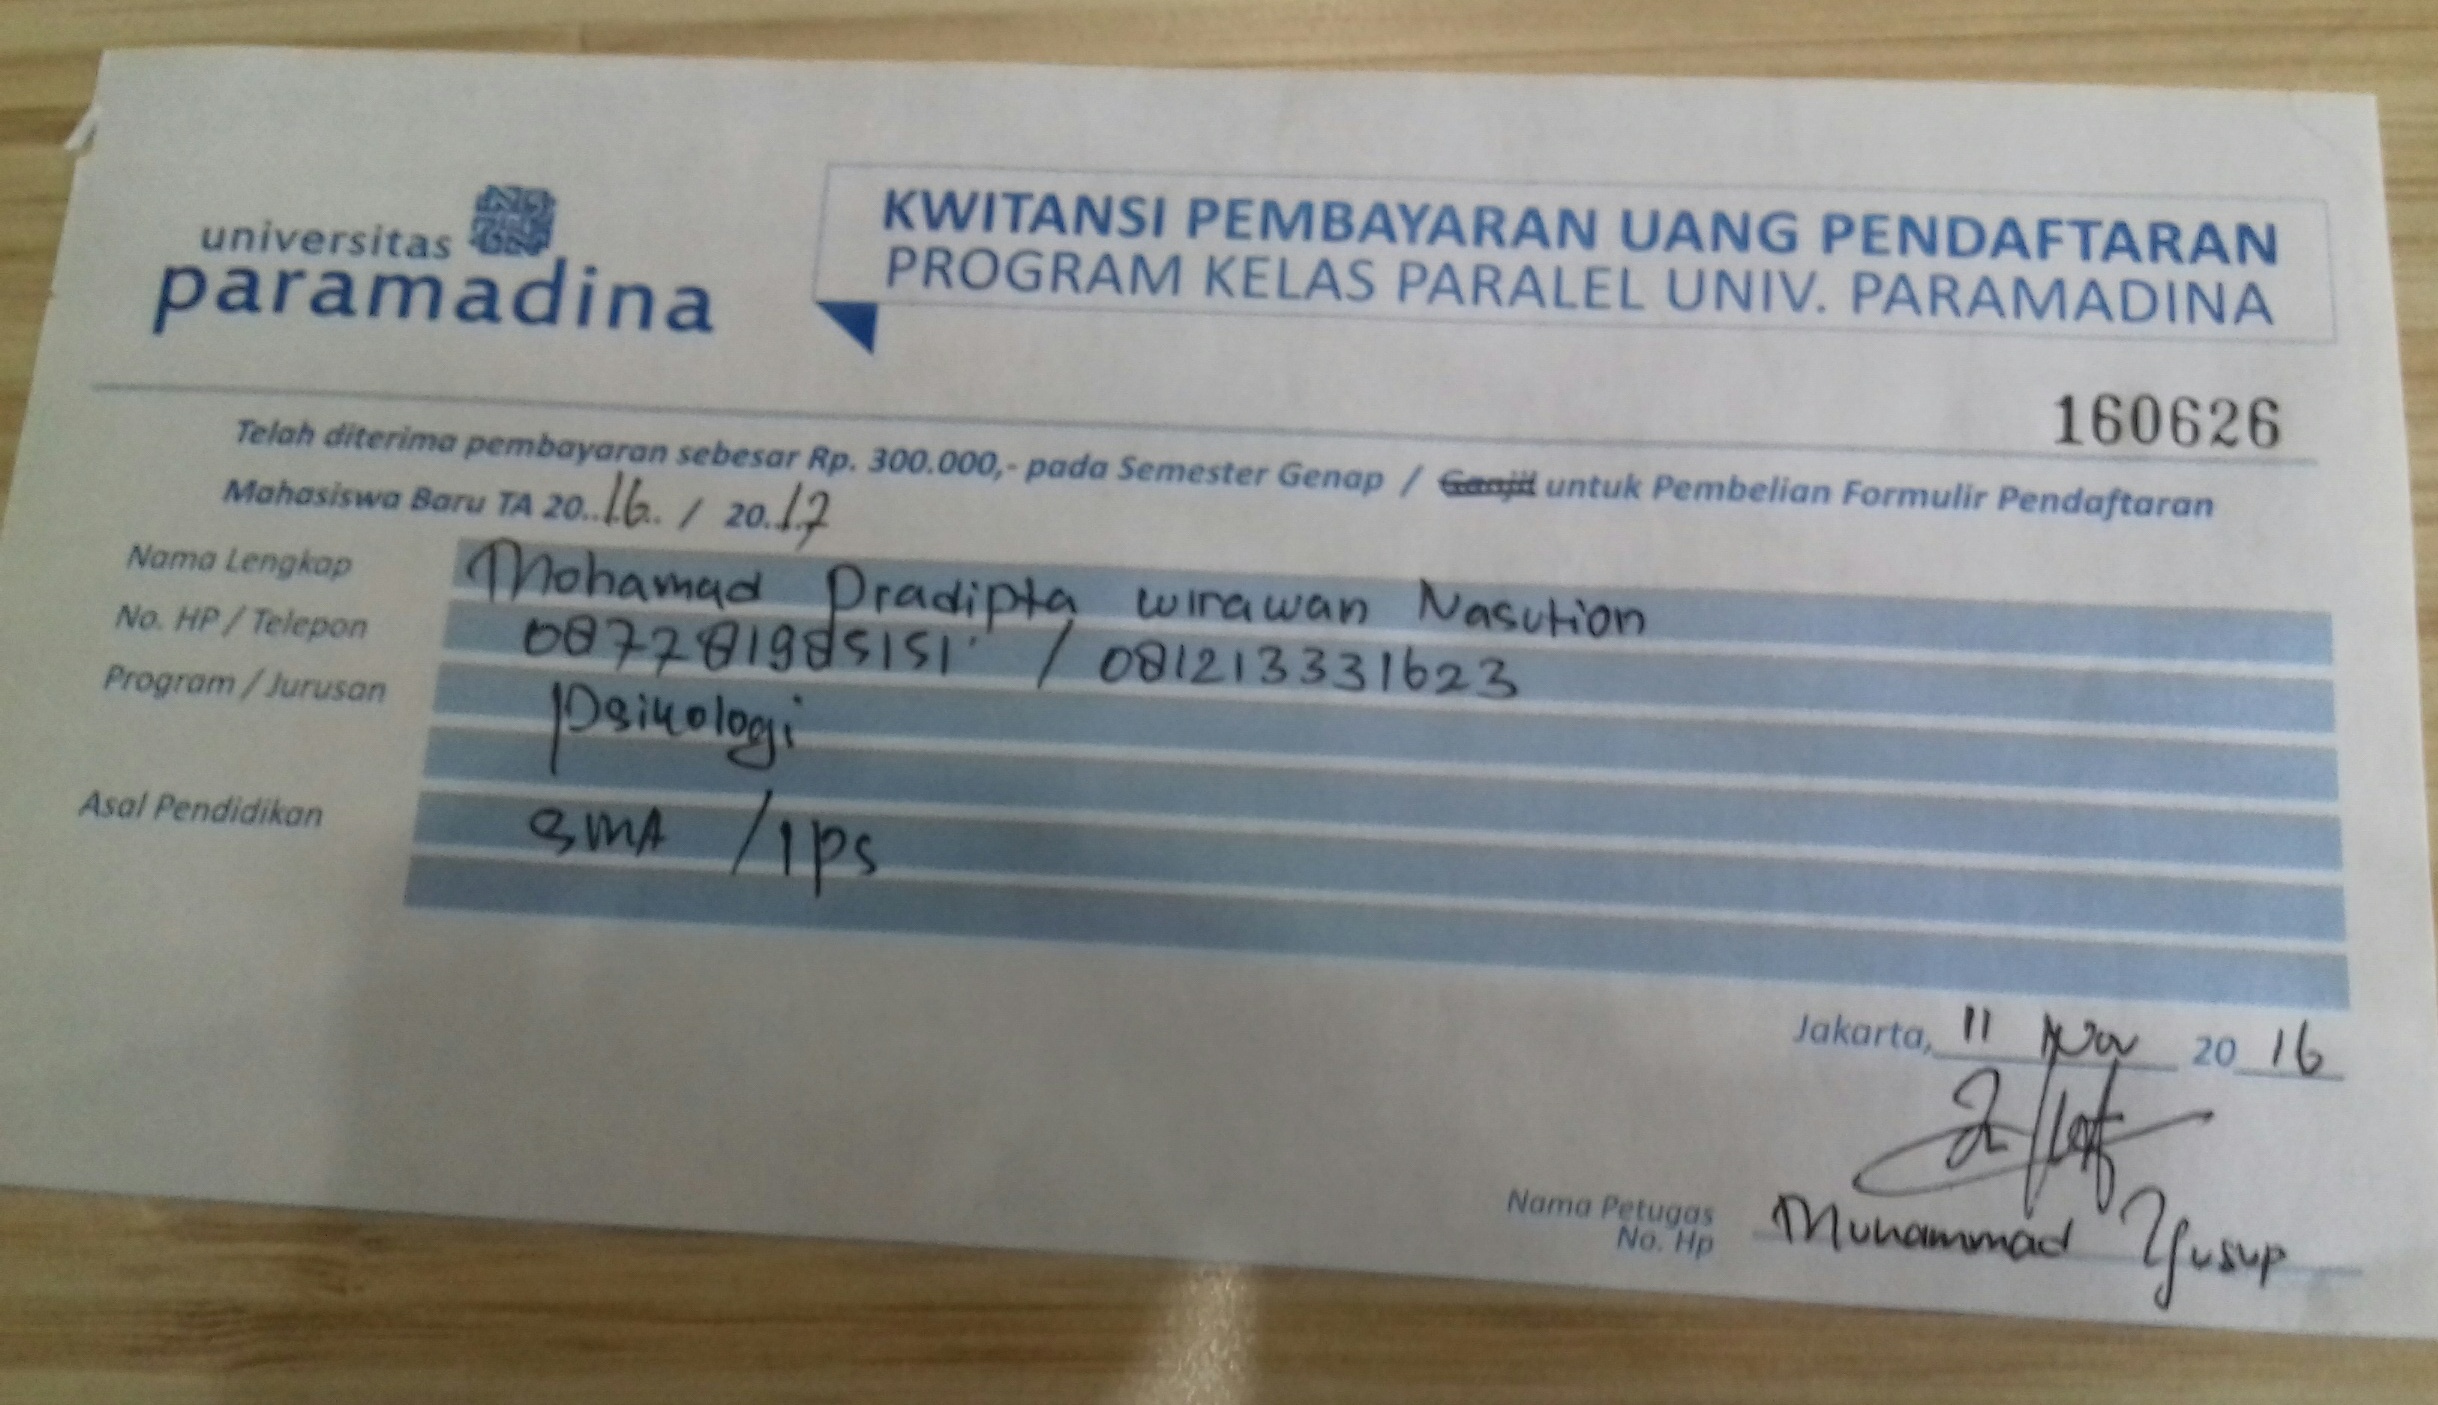 universitas
paramadina
KWITANSI PEMBAYARAN UANG PENDAFTARAN
PROGRAM KELAS PARALEL UNIV. PARAMADINA
160626
Telah diterima pembayaran sebesar Rp. 300.000,- pada Semester Genap / Ganjil untuk Pembelian Formulir Pendaftaran
Mahasiswa Baru TA 20..16.. / 20..17
Nama Lengkap Mohamad Pradipta wirawan Nasution
No. HP / Telepon 087781985151 / 081213331623
Program / Jurusan Psikologi
Asal Pendidikan SMA / IPS
Jakarta, 11 Nov 20 16
Nama Petugas Muhammad Yusup
No. Hp